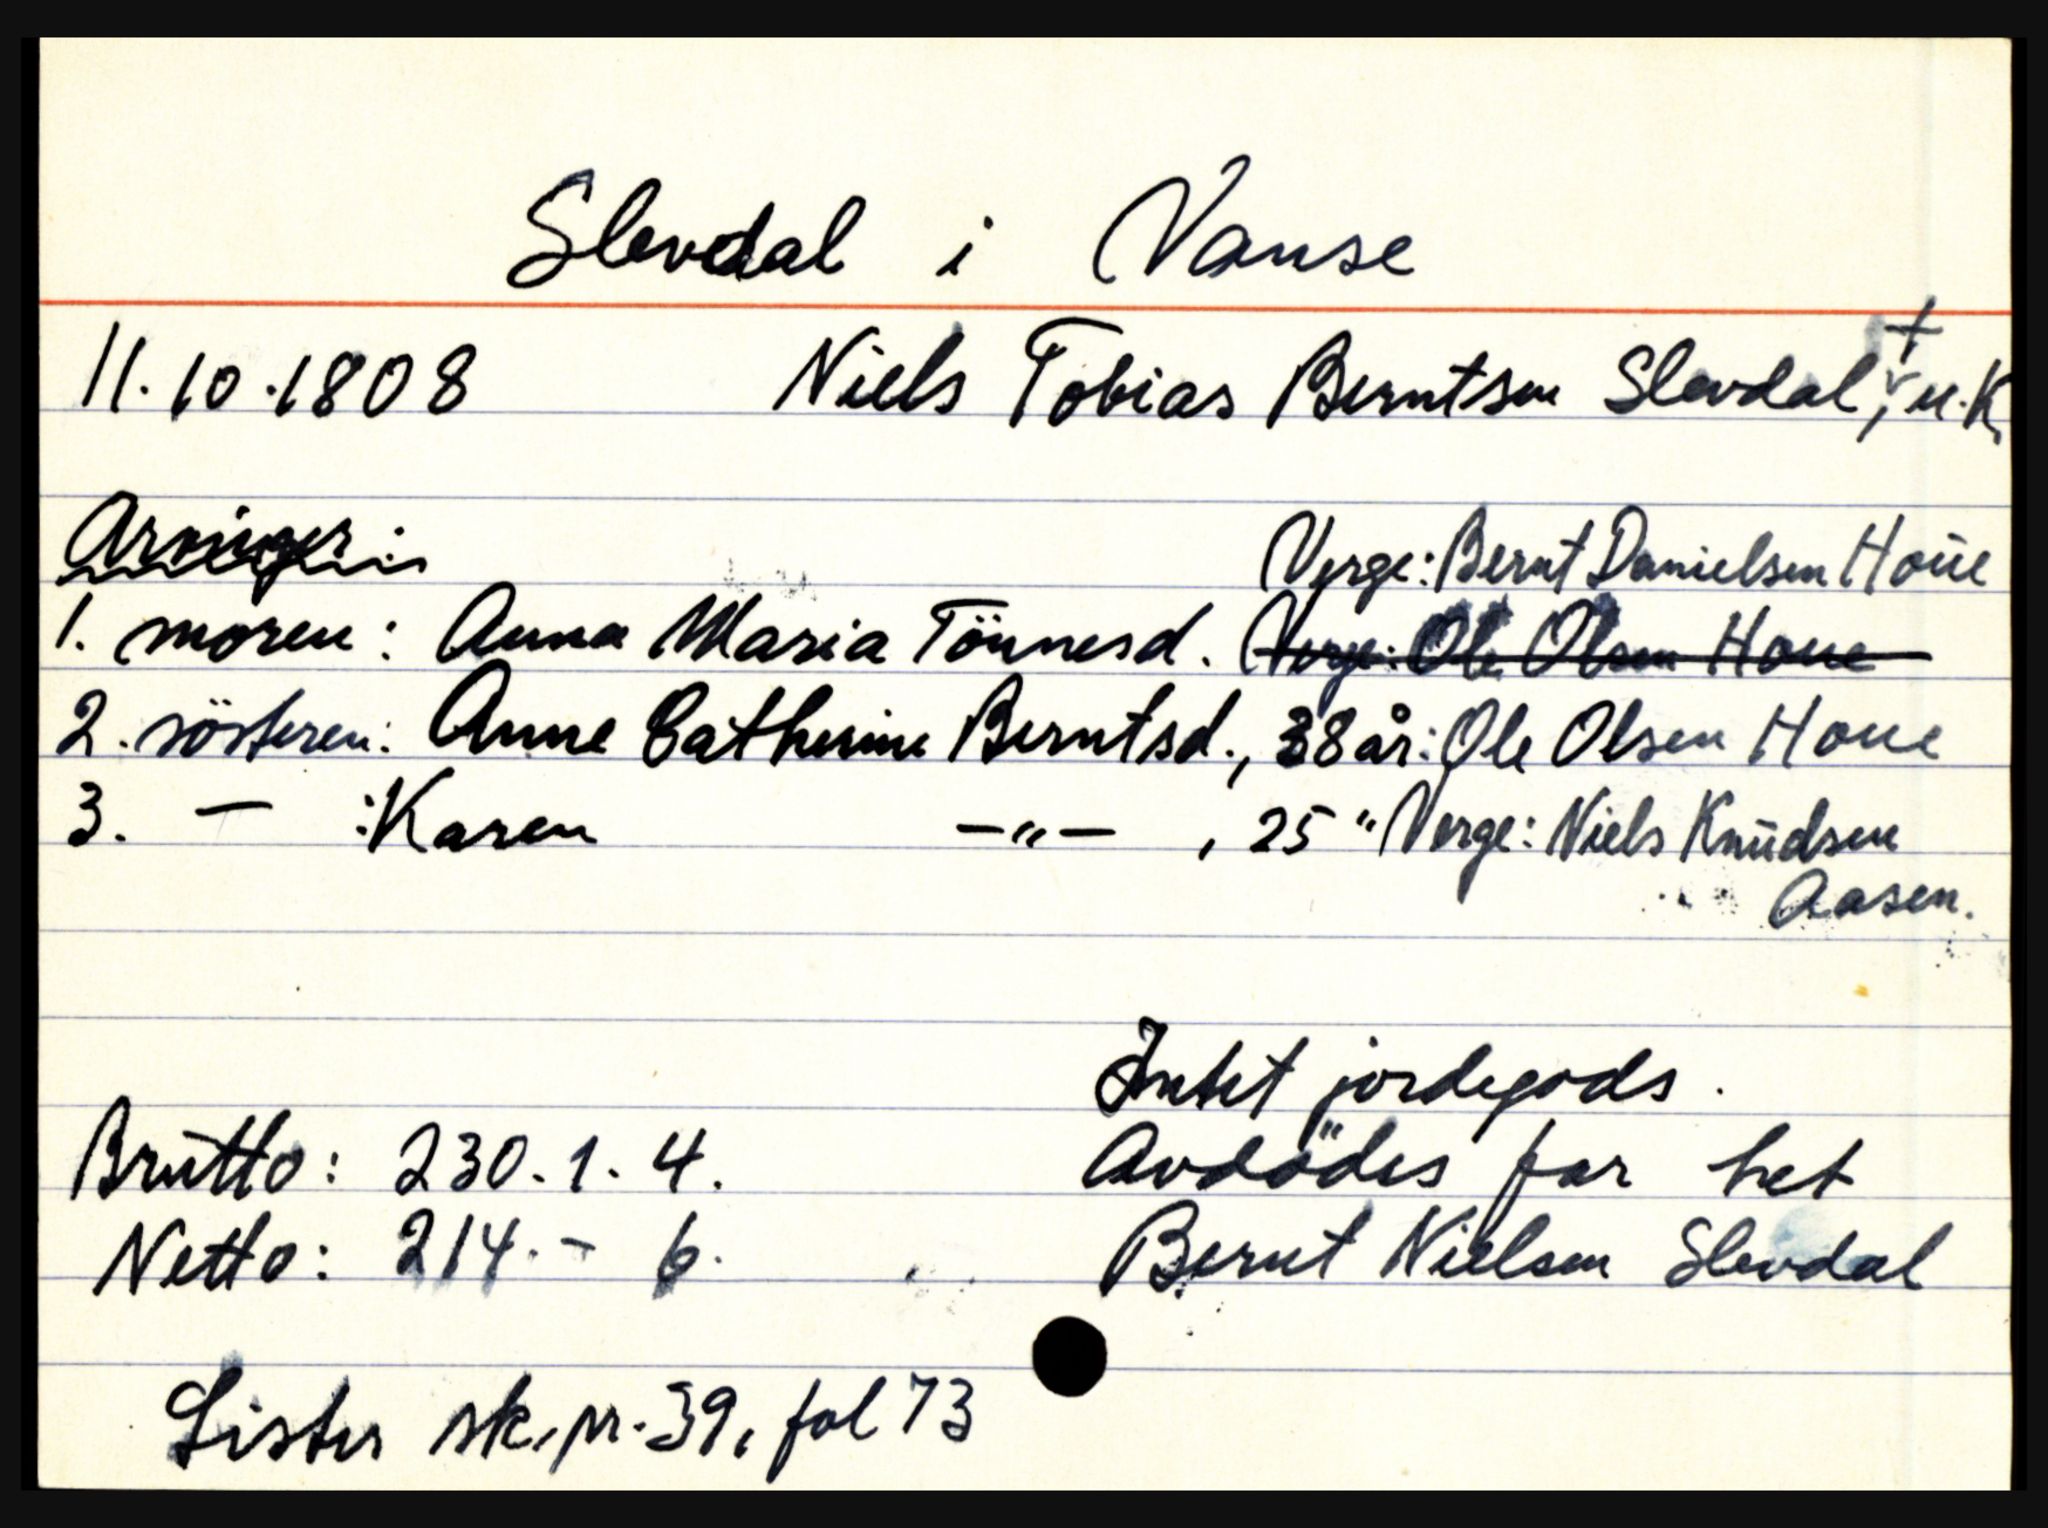 Slevdal i Vanse
11.10.1808 Niels Tobias Berntsen Slevdal, †, u.K.
Arvinger:
Verge: Bernt Danielsen Houe
1. moren: Anna Maria Tönnesd. Verge: Ole Olsen Houe
2. sösteren: Anne Catherine Berntsd., 38 år: Ole Olsen Houe
3. — : Karen —"— , 25 " Verge: Niels Knudsen
Aasen.
Intet jordegods.
Brutto: 230.1.4. Avdödes far het
Netto: 214.- 6. Bernt Nielsen Slevdal
Lister sk.pr. 39, fol 73